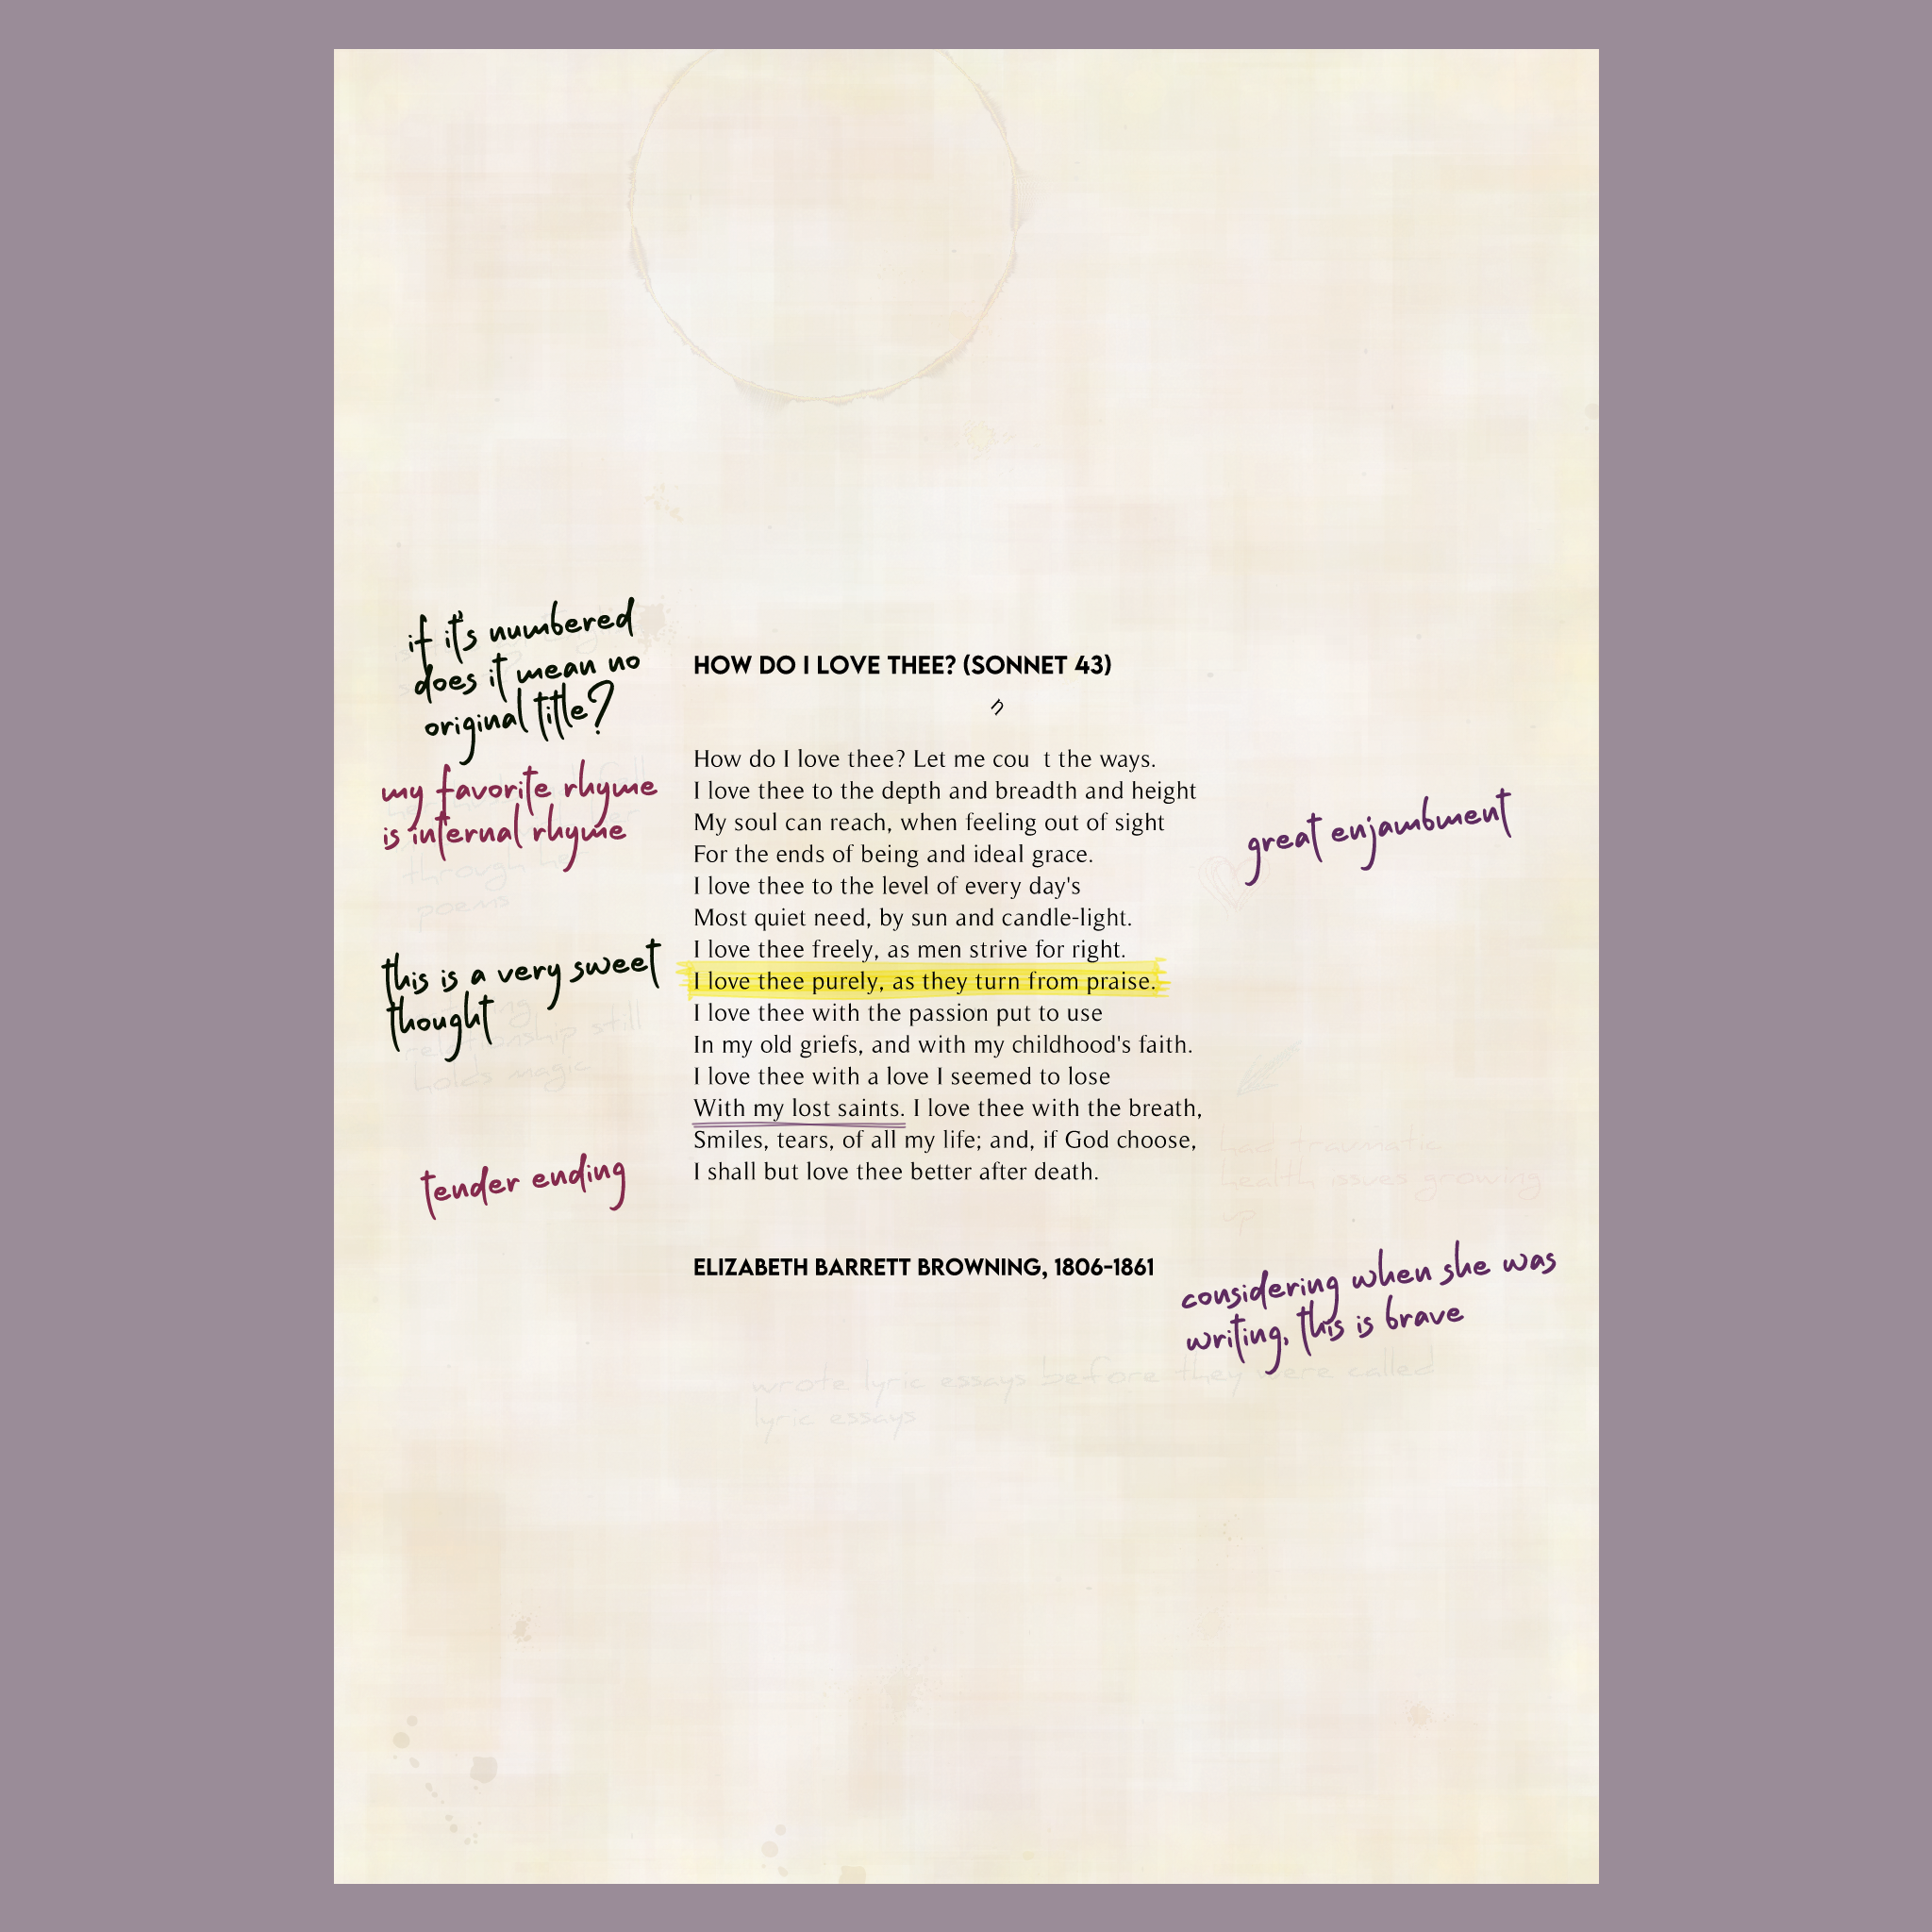 if it's numbered
does it mean no
original title?
HOW DO I LOVE THEE? (SONNET 43)
n
How do I love thee? Let me cou t the ways.
I love thee to the depth and breadth and height
My soul can reach, when feeling out of sight
For the ends of being and ideal grace.
I love thee to the level of every day's
Most quiet need, by sun and candle-light.
I love thee freely, as men strive for right.
I love thee purely, as they turn from praise.
I love thee with the passion put to use
In my old griefs, and with my childhood's faith.
I love thee with a love I seemed to lose
With my lost saints. I love thee with the breath,
Smiles, tears, of all my life; and, if God choose,
I shall but love thee better after death.
ELIZABETH BARRETT BROWNING, 1806-1861
my favorite rhyme
is internal rhyme
through
poems
this is a very sweet
thought
relationship still
holds magic
tender ending
great enjambment
had traumatic
health issues growing
up
considering when she was
writing, this is brave
wrote lyric essays before they were called
lyric essays